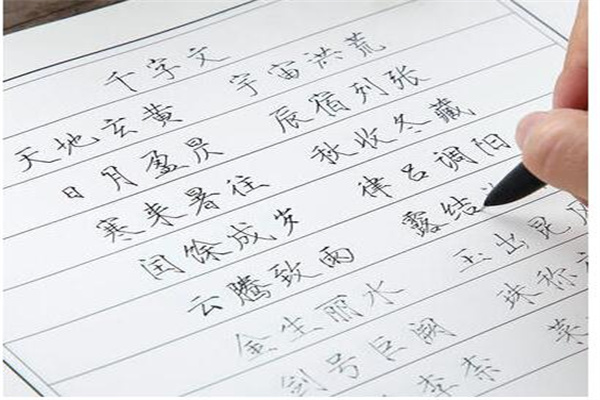 千字文
天地玄黄 宇宙洪荒
日月盈昃 辰宿列张
寒来暑往 秋收冬藏
闰馀成岁 律吕调阳
云腾致雨 露结
金生丽水 玉出昆
剑号巨阙 珠称
李柰 菜